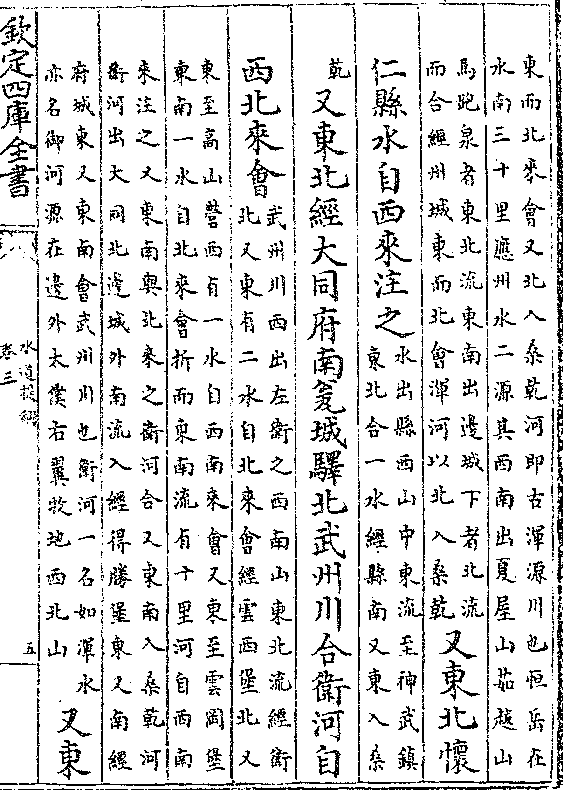 東而北來會又北入桑乾河即古渾源川也恒岳在
水南三十里應州水二源其西南出夏屋山茹越山
馬跑泉者東北流東南出邊城下者北流
而合經州城東而北會渾河以北入桑乾
又東北懷
仁縣水自西來注之
水出縣西山中東流至神武鎮
東北合一水經縣南又東入桑
乾
又東北經大同府南瓮城驛北武州川合衛河自
西北來會
武州川西出左衛之西南山東北流經衛
北又東有二水自北來會經雲西堡北又
東至高山營西有一水自西南來會又東至雲岡堡
東南一水自北來會折而東南流有十里河自西南
來注之又東南與北來之衛河合又東南入桑乾河
衛河出大同北邊城外南流入經得勝堡東又南經
府城東又東南會武州川也衛河一名如渾水
亦名御河源在邊外太僕右翼牧地西北山
又東
欽定四庫全書
水道提綱
卷三
五